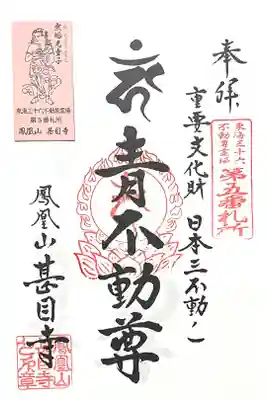 奉拝
東海三十六
不動尊霊場
第五番札所
重要文化財 日本三不動ノ一
青不動尊
鳳凰山 甚目寺
東海三十六不動尊霊場
第5番札所
鳳凰山 甚目寺